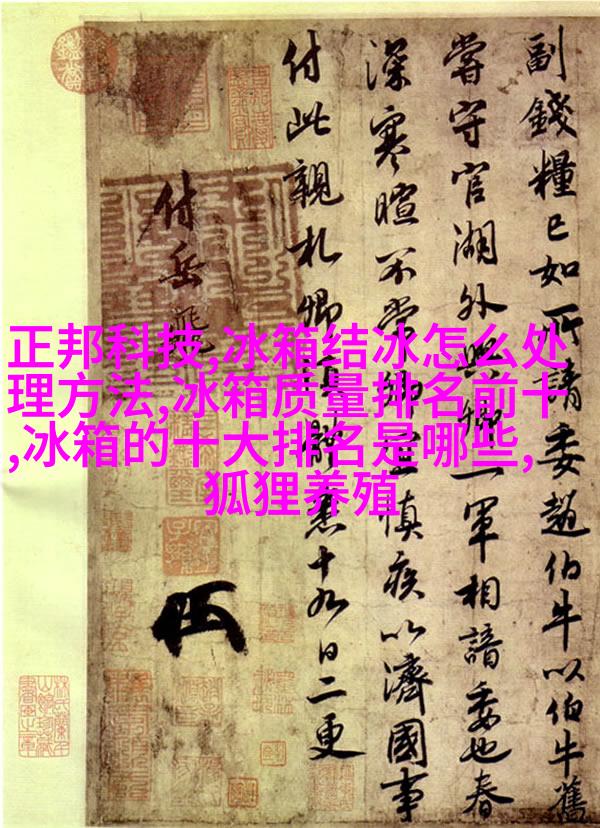 正邦科技,冰箱结冰怎么处
理方法,冰箱质量排名前十
,冰箱的十大排名是哪些,
狐狸养殖
副錢糧已如所請委趙伯牛以伯牛舊
嘗守官湖外與卿一軍相諳委也春
深寒暄不常卿宜慎疾以濟國事
付此親札卿悉十九日二更
付岳飛